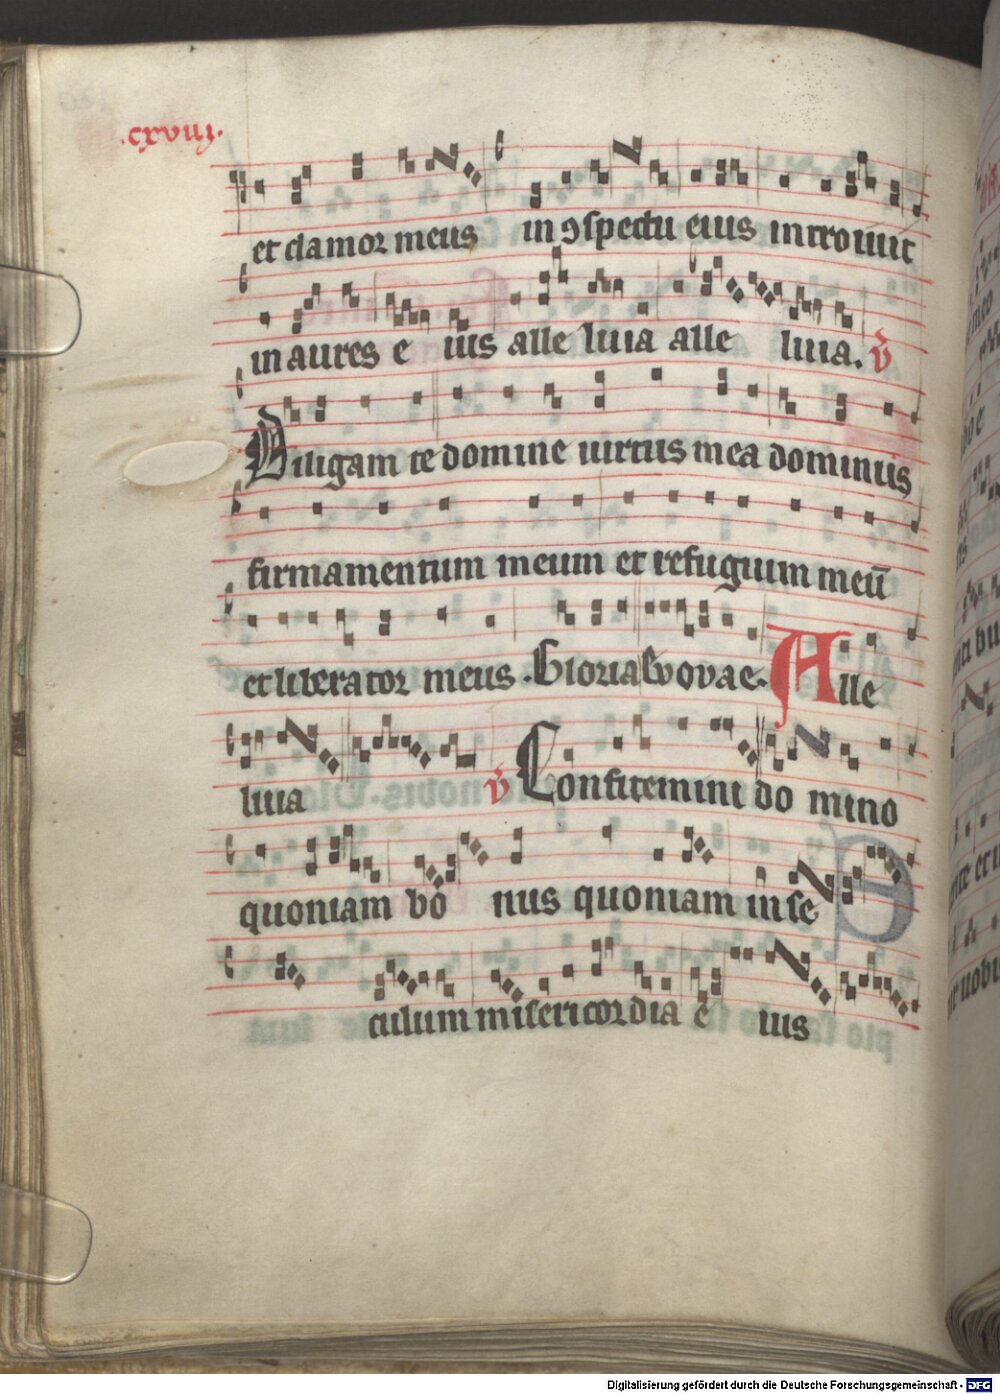 .cxviij.
et clamor meus in ꝯspectu eius introiuit
in aures e ius alle luia alle luia. v̄
Diligam te domine uirtus mea dominus
firmamentum meum et refugium meū
et liberator meus . Gloria Evovae . Alle
luia v̄ Confitemini do mino
quoniam bo nus quoniam in se
culum misericordia e ius
Digitalisierung gefördert durch die Deutsche Forschungsgemeinschaft - DFG